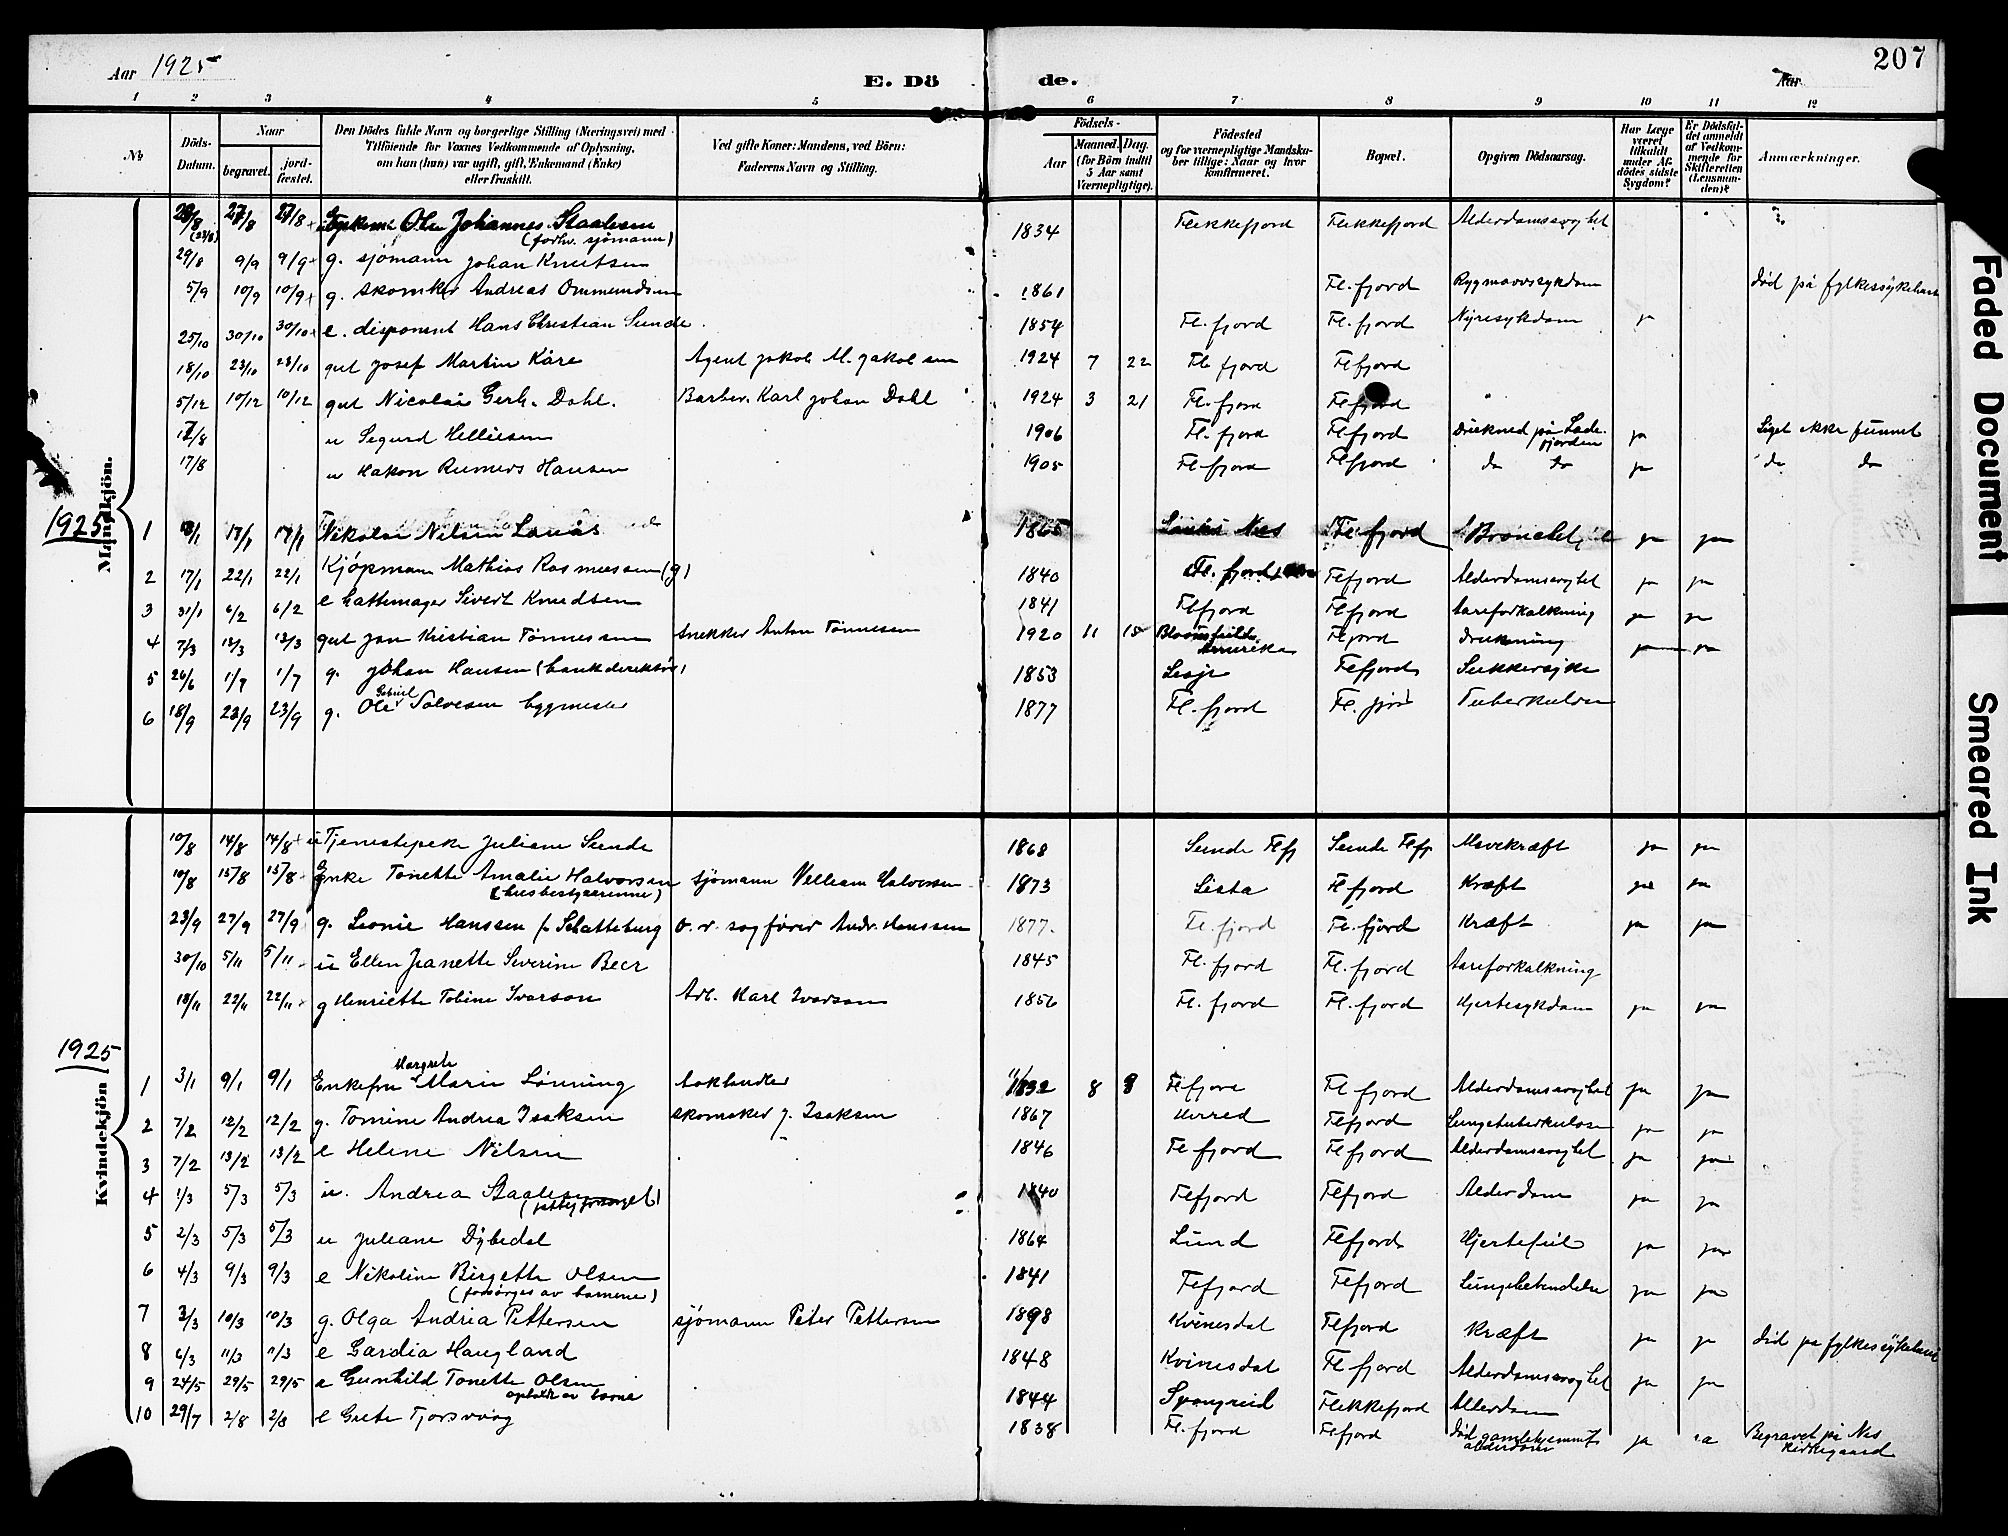 Aar 1925 E. Dö de. Aar 207
1 2 3 4 5 6 7 8 9 10 11 12
No Döds-Datum. Naar begravet. jord-fæstet. Den Dödes fulde Navn og borgerlige Stilling (Næringsvei) med Tilföiende for Voxnes Vedkommende af Oplysning, om han (hun) var ugift, gift, Enkemand (Enke) eller fraskilt. Ved gifte Koner: Mandens, ved Börn: Faderens Navn og Stilling. Födsels- Aar Maaned. Dag. (for Börn indtil 5 Aar samt Værnepligtige). Födested og for værnepligtige Mandskaber tillige: Naar og hvor konfirmeret. Bopæl. Opgiven Dödsaarsag. Har Læge været tilkaldt under Afdödes sidste Sygdom? Er Dödsfaldet anmeldt af Vedkommende for Skifteretten (Lensmanden)? Anmærkninger.
Mandkjön.
27/8 27/8 Ole Johannes Staalesen 1834 Flekkefjord Flekkefjord Alderdomssvaghet
(forhv. sjømann)
29/8 9/9 9/9 g. sjømann Johan Knutsen
5/9 10/9 10/9 g. skomker Andreas Ommundsen 1861 Fl. fjord Rygmarvssykdom død på fylkessykehuset
25/10 30/10 30/10 e. disponent Hans Christian Sunde 1854 Fl. fjord Fl. fjord Nyresykdom ja
18/10 23/10 23/10 gut Josef Martin Kåre Agent Jakob M. Jakobsen 1924 7 22 Fl. fjord Flfjord
5/12 10/12 10/12 gut Nicolai Gerh. Dahl. Barber. Karl Johan Dahl 1924 3 21 Fl. fjord Flfjord
17/8 u Sigurd Helliesen 1906 Fl. fjord Flfjord Druknet på ja Liget ikke funnet
17/8 u Håkon Reimers Hansen 1905 Fl. fjord Flfjord do do ja do do
1925
1 17/1 17/1 Nikolai Nilsen 1865 Nes Fl. fjord ja ja
2 17/1 22/1 22/1 Kjøpmann Mathias Rasmussen (g) 1840 Fl. fjord Flfjord Alderdomssvaghet ja ja
3 31/1 6/2 6/2 e hattemager Sivert Knudsen 1841 Flfjord Flfjord aareforkalkning ja ja
4 7/3 13/3 13/3 gut Jan Kristian Tønnessen snekker Anton Tønnesen 1920 11 15 Bloomfield, Amerika Flfjord drukning ja ja
5 26/6 1/7 1/7 g. Johan Hansen (bankdirektør) 1853 Flfjord Sukkersyke
6 18/9 23/9 23/9 g. Ole Gabriel Salvesen byggmester 1877 Fl. fjord Fl. fjord Tuberkulose
Kvindekjön
10/8 14/8 14/8 u Tjenestepike Juliane Sunde 1868 Sunde Flfj Sunde Flfj Mavekræft ja ja
10/8 15/8 15/8 Enke Tonette Amalie Halvorsen sjømann Velleam Halvorsen 1873 Lista Flfjord Kræft ja ja
(husbestyrerinne)
23/9 27/9 27/9 g. Leonie Hanssen f. Schatteburg o. r. sagfører Andr. Hanssen 1877. Fl. fjord Fl. fjord Kræft ja ja
30/10 5/11 5/11 u Ellen Jeanette Severine Beer 1845 Fl. fjord Fl. fjord Aareforkalkning
18/11 22/11 22/11 g Henriette Tobine Ivarson Arb. Karl Ivarson 1856 Fl. fjord Fl. fjord Hjertesykdom ja ja
1925
1 3/1 9/1 9/1 Enkefru Margrete Marie Lønning 1832 8 8 Flfjord Fl fjord Alderdomssvaghet ja ja
2 7/2 12/2 12/2 g. Tomine Andrea Isaksen skomaker J. Isaksen 1867 Herred Flfjord Lungetuberkulose ja ja
3 7/2 13/2 13/2 e Helene Nilsen 1846 Fl fjord Fl fjord Alderdomssvaghet ja ja
4 1/3 5/3 5/3 u. Andrea Staalesen 1840 Flfjord Flfjord Alderdom ja ja
5 2/3 5/3 5/3 u Juliane Dybedal 1864 Lund Flfjord Hjertefeil ja ja
6 4/3 9/3 9/3 e Nikoline Birgette Olsen 1841 Flfjord Flfjord Lungebetendelse ja ja
(forsørges av barnene)
7 3/3 10/3 10/3 g. Olga Andrea Pettersen sjømann Peter Pettersen 1898 Kvinesdal Flfjord Kræft ja ja død på fylkessykehuset
8 6/3 11/3 11/3 e Gardia Haugland 1848 Kvinesdal Fl fjord Alderdomssvaghet ja ja
9 24/5 29/5 29/5 e Gunhild Tonette Olsen 1844 Spangreid Flekkefjord Alderdom
10 29/7 2/8 2/8 e Grete Tjorsvaag 1838 Fl. fjord Flfjord Død gamlehjemmet alderdom ja Begravet på Nes Kirkegaard
Faded Document
Smeared Ink